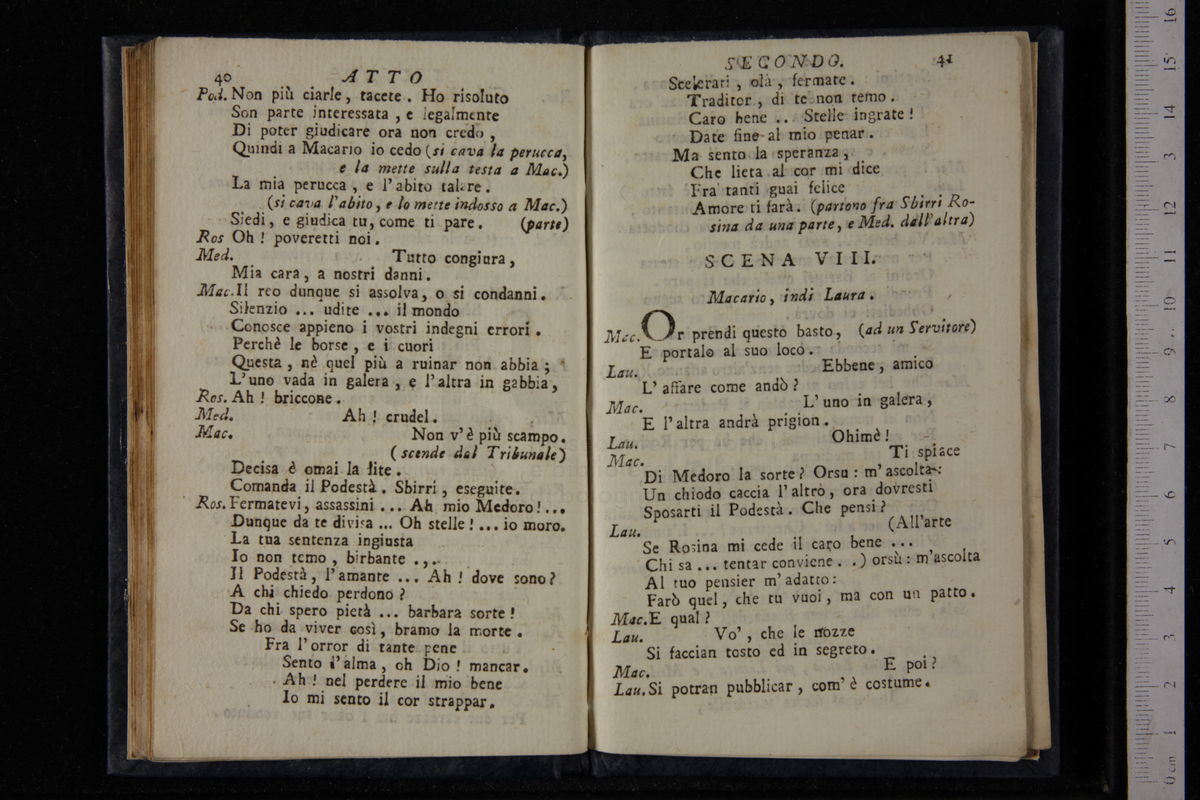 40 ATTO
Pod. Non più ciarle, tacete. Ho risoluto
Son parte interessata, e legalmente
Di poter giudicare ora non credo,
Quindi a Macario io cedo (si cava la perucca,
e la mette sulla testa a Mac.)
La mia perucca, e l'abito talare.
(si cava l'abito, e lo mette indosso a Mac.)
Siedi, e giudica tu, come ti pare. (parte)
Ros Oh! poveretti noi.
Med. Tutto congiura,
Mia cara, a nostri danni.
Mac. Il reo dunque si assolva, o si condanni.
Silenzio ... udite ... il mondo
Conosce appieno i vostri indegni errori.
Perchè le borse, e i cuori
Questa, nè quel più a ruinar non abbia;
L'uno vada in galera, e l'altra in gabbia,
Ros. Ah! briccone.
Med. Ah! crudel.
Mac. Non v'è più scampo.
(scende dal Tribunale)
Decisa è omai la lite.
Comanda il Podestà. Sbirri, eseguite.
Ros. Fermatevi, assassini ... Ah mio Medoro!...
Dunque da te divisa ... Oh stelle! ... io moro.
La tua sentenza ingiusta
Io non temo, birbante ...
Il Podestà, l'amante ... Ah! dove sono?
A chi chiedo perdono?
Da chi spero pietà ... barbara sorte!
Se ho da viver così, bramo la morte.
Fra l'orror di tante pene
Sento l'alma, oh Dio! mancar.
Ah! nel perdere il mio bene
Io mi sento il cor strappar.
SECONDO. 41
Scelerati, olà, fermate.
Traditor, di te non temo.
Caro bene .. Stelle ingrate!
Date fine al mio penar.
Ma sento la speranza,
Che lieta al cor mi dice
Fra tanti guai felice
Amore ti farà. (partono fra Sbirri Ro-
sina da una parte, e Med. dall'altra)
SCENA VIII.
Macario, indi Laura.
Mac. Or prendi questo basto, (ad un Servitore)
E portalo al suo loco.
Lau. Ebbene, amico
L'affare come andò?
Mac. L'uno in galera,
E l'altra andrà prigion.
Lau. Ohimè!
Mac. Ti spiace
Di Medoro la sorte? Orsu: m'ascolta:
Un chiodo caccia l'altro, ora dovresti
Sposarti il Podestà. Che pensi?
Lau. (All'arte
Se Rosina mi cede il caro bene ...
Chi sa ... tentar conviene . .) orsù: m'ascolta
Al tuo pensier m'adatto:
Farò quel, che tu vuoi, ma con un patto.
Mac. E qual?
Lau. Vo', che le nozze
Si faccian tosto ed in segreto.
Mac. E poi?
Lau. Si potran pubblicar, com'è costume.